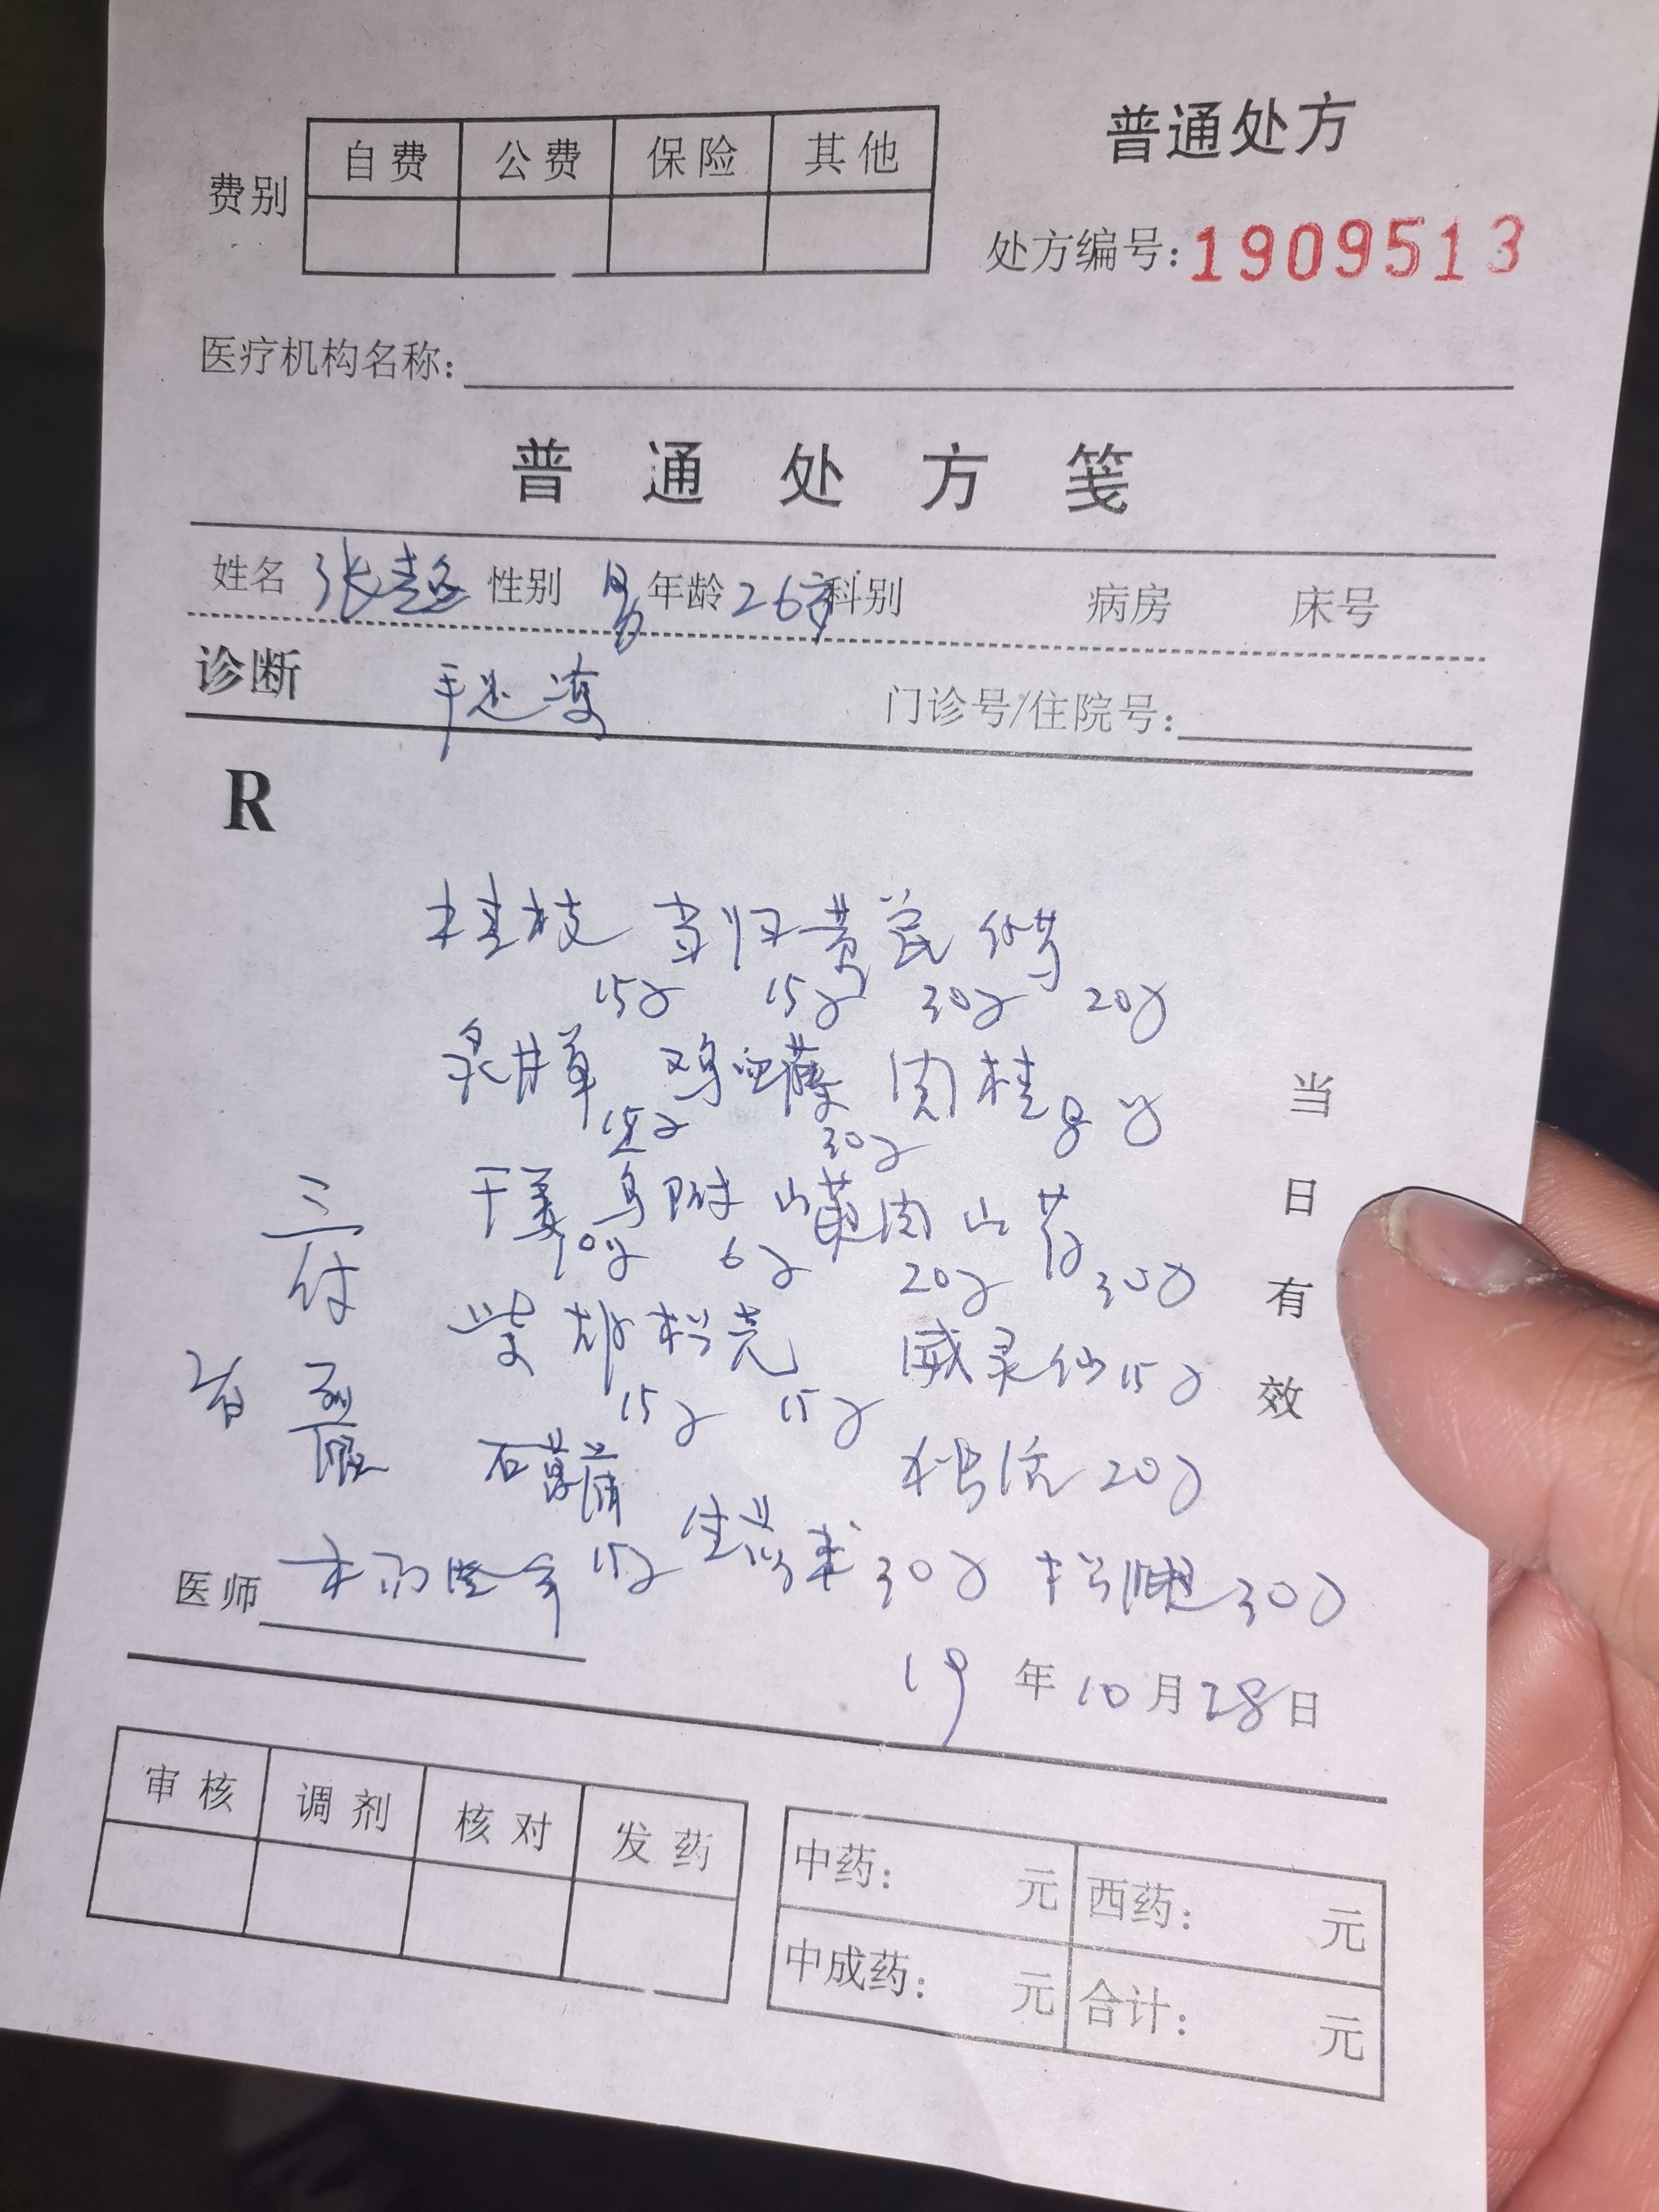 普通处方
费别 自费 公费 保险 其他
处方编号:1909513
医疗机构名称:
普通处方笺
姓名 张 性别 男 年龄 26岁 科别 病房 床号
诊断 手足凉 门诊号/住院号:
R
桂枝 当归 黄芪
15g 15g 30g 20g
炙甘草 鸡血藤 肉桂 8g
15g 30g
干姜 乌附 山萸肉 山药
10g 6g 20g 30g
三付
柴胡 枳壳 威灵仙 15g
15g 15g
石菖蒲 独活 20g
医师 15g 30g 30g
19年10月28日
当日有效
审核 调剂 核对 发药
中药: 元 西药: 元
中成药: 元 合计: 元